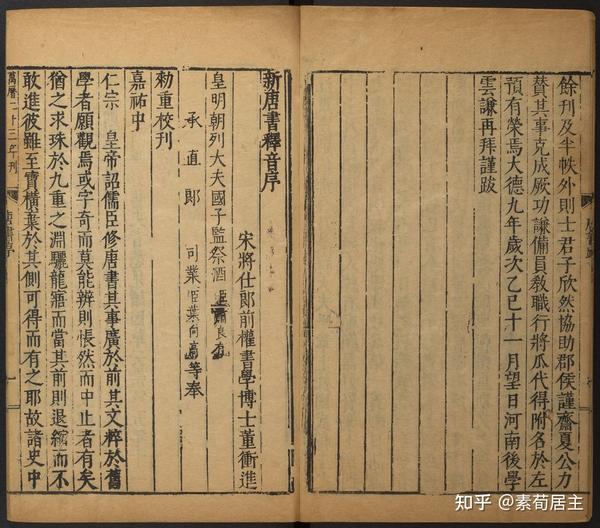 餘刊及半帙外則士君子欣然協助郡侯謹齋夏公力
賛其事克成厥功謙備員敎職行將瓜代得附名於左
預有榮焉大德九年歲次乙巳十一月望日河南後學
雲謙再拜謹跋
新唐書釋音序
宋將仕郎前權書學博士董衝進
皇明朝列大夫國子監祭酒臣蕭良有
承直郎 司業臣葉向高等奉
勑重校刊
嘉祐中
仁宗 皇帝詔儒臣修唐書其事廣於前其文粹於舊
學者願觀焉或字奇而莫能辨則悵然而中止者有矣
猶之求珠於九重之淵驪龍寤而當其前則退縮而不
敢進彼雖至寶橫棄於其側可得而有之耶故諸史中
萬曆二十三年刊 唐書序 一
知乎 @素荀居主